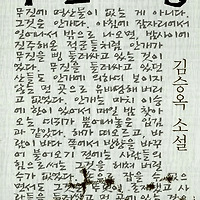 무진에 명산물이 없는 게 아니다.
그것은 안개다. 아침에 잠자리에서
일어나서 밖으로 나오면, 밤사이에
진주해온 적군들처럼 안개가
무진을 삥 둘러싸고 있는 것이
었다. 무진을 둘러싸고 있던
산들도 안개에 의하여 보이지
않는 먼 곳으로 유배당해 버리
고 없었다. 안개는 마치 이승에
한이 있어서 매일 밤 찾아
오는 여귀가 뿜어내놓은 입김
과 같았다. 해가 떠오르고, 바
람이 바다 쪽에서 방향을 바꾸
어 불어오기 전에는 사람들의
힘으로써는 그것을 헤쳐 버릴
수가 없었다. 잡을 수
면서도 그것은
김승옥 소설